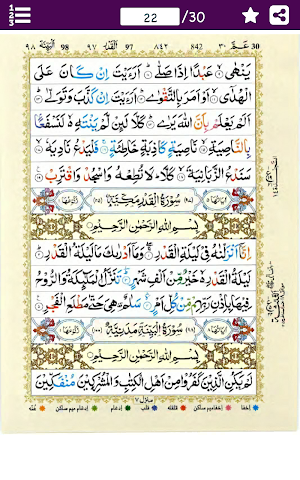 22 /30
٩٨ البينة 98 ٩٧ القدر 97 ٨٤٢ 842 ٣٠ عم 30
يَنْهٰى ۙ عَبْدًا اِذَا صَلّٰى ؕ اَرَءَيْتَ اِنْ كَانَ عَلَى
الْهُدٰٓى ۙ اَوْ اَمَرَ بِالتَّقْوٰى ؕ اَرَءَيْتَ اِنْ كَذَّبَ وَتَوَلّٰى ؕ
اَلَمْ يَعْلَمْ بِاَنَّ اللّٰهَ يَرٰى ؕ كَلَّا لَئِنْ لَّمْ يَنْتَهِ ۙ لَنَسْفَعًۢا
بِالنَّاصِيَةِ ۙ نَاصِيَةٍ كَاذِبَةٍ خَاطِئَةٍ ۚ فَلْيَدْعُ نَادِيَهٗ ۙ
سَنَدْعُ الزَّبَانِيَةَ ۙ كَلَّا ؕ لَا تُطِعْهُ وَاسْجُدْ وَاقْتَرِبْ
سُوْرَةُ الْقَدْرِ مَكِّيَّةٌ
بِسْمِ اللّٰهِ الرَّحْمٰنِ الرَّحِيْمِ
اِنَّآ اَنْزَلْنٰهُ فِيْ لَيْلَةِ الْقَدْرِ ۚ وَمَآ اَدْرٰىكَ مَا لَيْلَةُ الْقَدْرِ ؕ
لَيْلَةُ الْقَدْرِ ۙ خَيْرٌ مِّنْ اَلْفِ شَهْرٍ ؕ تَنَزَّلُ الْمَلٰٓئِكَةُ وَالرُّوْحُ
فِيْهَا بِاِذْنِ رَبِّهِمْ ۚ مِنْ كُلِّ اَمْرٍ ۙ سَلٰمٌ ۛ هِيَ حَتّٰى مَطْلَعِ الْفَجْرِ
سُوْرَةُ الْبَيِّنَةِ مَدَنِيَّةٌ
بِسْمِ اللّٰهِ الرَّحْمٰنِ الرَّحِيْمِ
لَمْ يَكُنِ الَّذِيْنَ كَفَرُوْا مِنْ اَهْلِ الْكِتٰبِ وَالْمُشْرِكِيْنَ مُنْفَكِّيْنَ
اخفا اخفامیم ساکن قلقلہ قلب ادغام ادغام میم ساکن غنّہ
منزل ٧